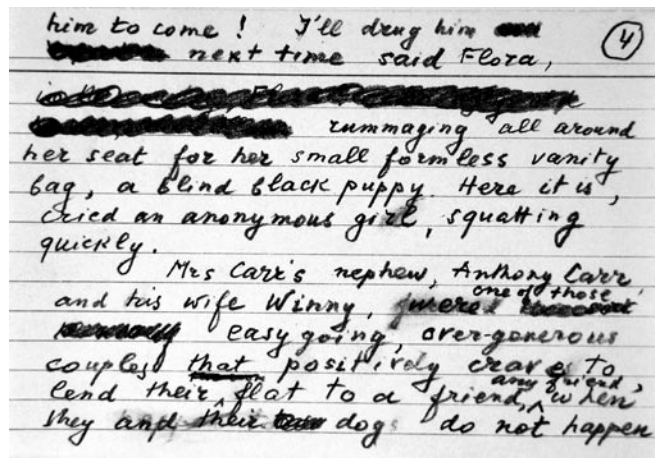 4
him to come! I'll drug him
next time said Flora,
rummaging all around
her seat for her small formless vanity
bag, a blind black puppy. Here it is,
cried an anonymous girl, squatting
quickly.
Mrs Carr's nephew, Anthony Carr
and his wife Winny, were one of those
easygoing, over-generous
couples that positively crave to
lend their flat to a friend, any friend, when
they and their dog do not happen